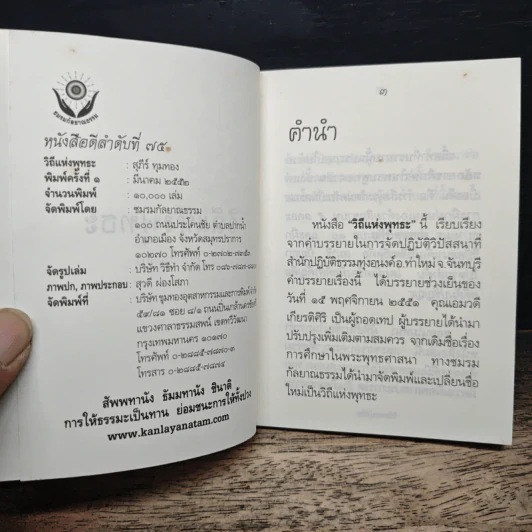 ชมรมกัลยาณธรรม
หนังสือดีลำดับที่ ๗๕
วิถีแห่งพุทธะ : สุภีร์ ทุมทอง
พิมพ์ครั้งที่ ๑ : มีนาคม ๒๕๕๒
จำนวนพิมพ์ : ๑๐,๐๐๐ เล่ม
จัดพิมพ์โดย : ชมรมกัลยาณธรรม
๑๐๐ ถนนประโคนชัย ตำบลปากน้ำ
อำเภอเมือง จังหวัดสมุทรปราการ
๑๐๒๗๐ โทรศัพท์
จัดรูปเล่ม : บริษัท วิธีทำ จำกัด โทร
ภาพปก, ภาพประกอบ : สุวดี ผ่องโสภา
จัดพิมพ์ที่ : บริษัท ขุมทองอุตสาหกรรมและการพิมพ์ จำกัด
๕๙/๘๑ ซอย
แขวงศาลาธรรมสพน์ เขตทวีวัฒนา
กรุงเทพมหานคร ๑๐๑๗๐
โทรศัพท์
โทรสาร
สัพพทานัง ธัมมทานัง ชินาติ
การให้ธรรมะเป็นทาน ย่อมชนะการให้ทั้งปวง
www.kanlayanatam.com
๓
คำนำ
หนังสือ "วิถีแห่งพุทธะ" นี้ เรียบเรียง
จากคำบรรยายในการจัดปฏิบัติวิปัสสนาที่
สำนักปฏิบัติธรรมทุ่งองค์ อ.ท่าใหม่ จ.จันทบุรี
คำบรรยายเรื่องนี้ ได้บรรยายช่วงเย็นของ
วันที่ ๑๕ พฤศจิกายน ๒๕๕๑ คุณแอมวดี
เกียรติศิริ เป็นผู้ถอดเทป ผู้บรรยายได้นำมา
ปรับปรุงเพิ่มเติมตามสมควร จากเดิมชื่อเรื่อง
การศึกษาในพระพุทธศาสนา ทางชมรม
กัลยาณธรรมได้นำมาจัดพิมพ์และเปลี่ยนชื่อ
ใหม่เป็นวิถีแห่งพุทธะ